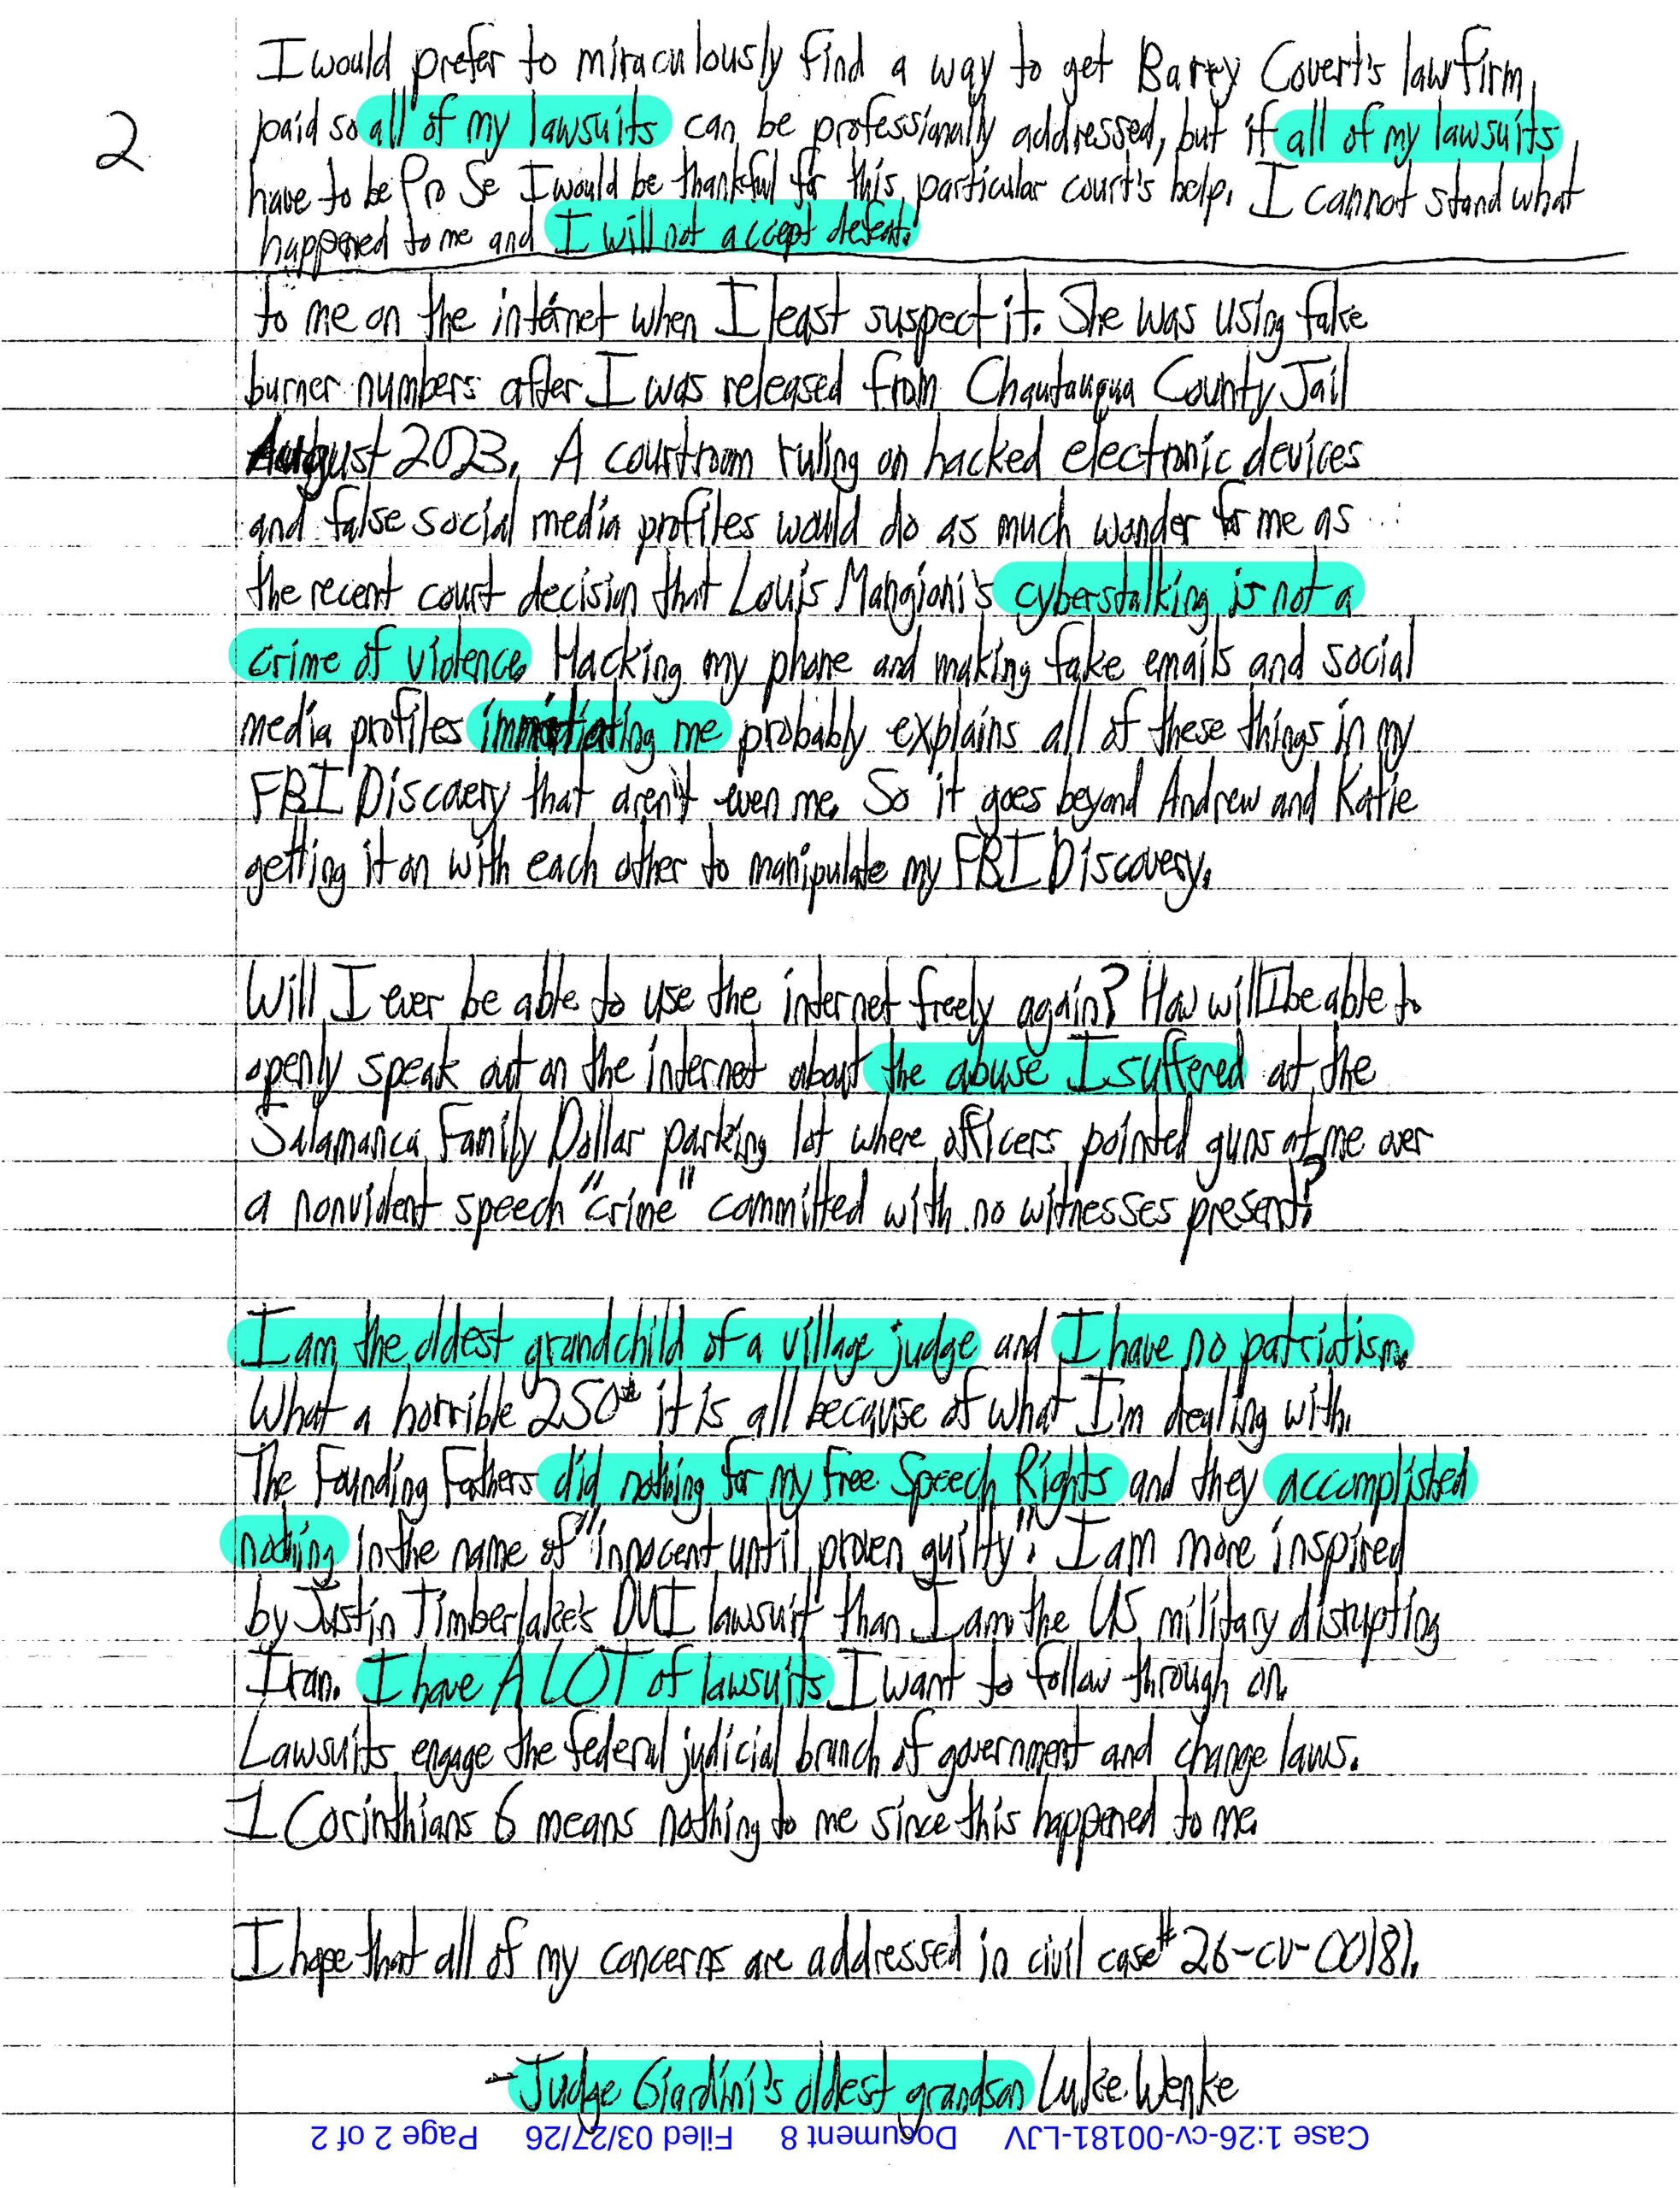 I would prefer to miraculously find a way to get Barry Covert's law firm
2
paid so all of my lawsuits can be professionally addressed, but if all of my lawsuits
have to be Pro Se I would be thankful for this particular court's help. I cannot stand what
happened to me and I will not accept defeat.
to me on the internet when I least suspect it. She was using fake
burner numbers after I was released from Chautauqua County Jail
August 2023. A courtroom ruling on hacked electronic devices
and false social media profiles would do as much wonder for me as
the recent court decision that Louis Mangioni's cyberstalking is not a
crime of violence. Hacking my phone and making fake emails and social
media profiles immitiating me probably explains all of these things in my
FBI Discovery that aren't even me. So it goes beyond Andrew and Katie
getting it on with each other to manipulate my FBI Discovery.
Will I ever be able to use the internet freely again? How will I be able to
openly speak out on the internet about the abuse I suffered at the
Salamanca Family Dollar parking lot where officers pointed guns at me over
a nonviolent speech "crime" committed with no witnesses present?
I am the oldest grandchild of a village judge and I have no patriotism.
What a horrible 250th it is all because of what I'm dealing with.
The Founding Fathers did nothing for my Free Speech Rights and they accomplished
nothing in the name of "innocent until proven guilty". I am more inspired
by Justin Timberlake's DUI lawsuit than I am the US military disrupting
Iran. I have A LOT of lawsuits I want to follow through on.
Lawsuits engage the federal judicial branch of government and change laws.
1 Corinthians 6 means nothing to me since this happened to me.
I hope that all of my concerns are addressed in civil case# 26-cv-00181.
-Judge Giardini's oldest grandson Luke Wenke
Case 1:26-cv-00181-LJV Document 8 Filed 03/27/26 Page 2 of 2